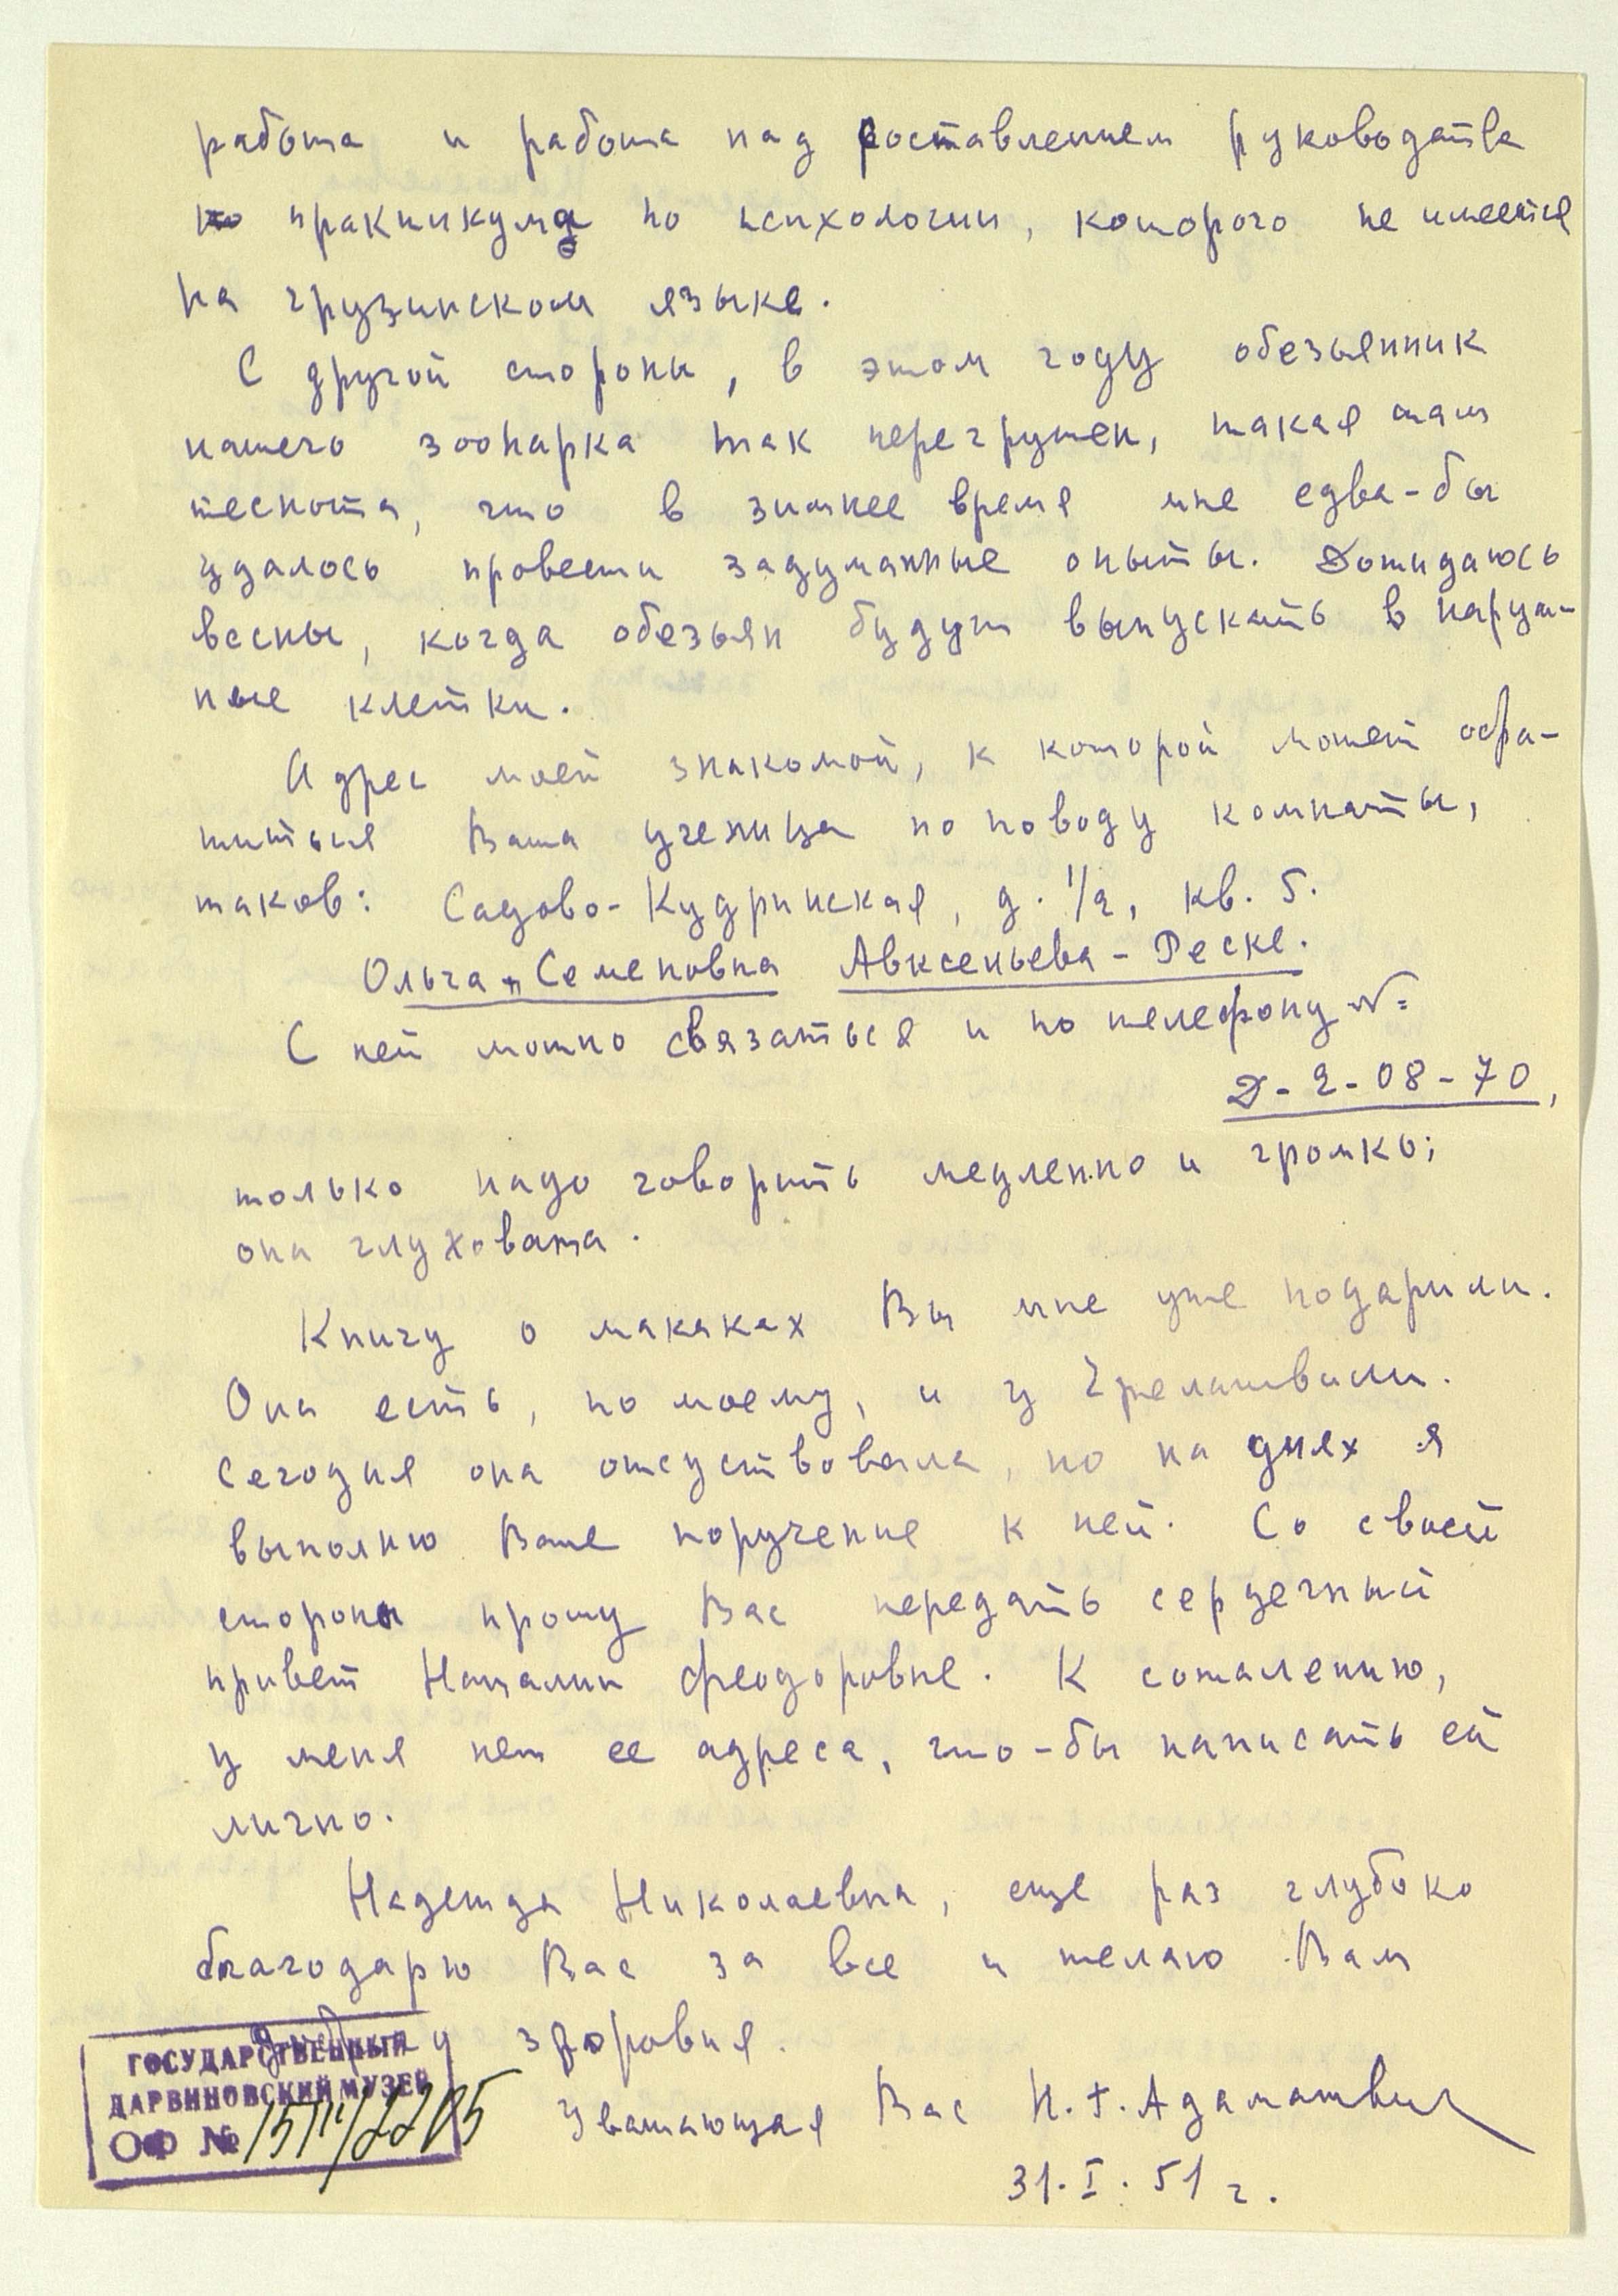 работа и работа над составлением руководства
по практикума по психологии, которого не имеется
на грузинском языке.
С другой стороны, в этом году обезьянник
нашего зоопарка так перегружен, такая там
теснота, что в зимнее время мне едва-бы
удалось провести задуманные опыты. Дожидаюсь
весны, когда обезьян будут выпускать в наруж-
ные клетки.
Адрес моей знакомой, к которой может обра-
титься Ваша ученица по поводу комнаты,
таков: Садово-Кудринская, д. 1/2, кв. 5.
Ольга Семеновна Авксеньева-Реске.
С ней можно связаться и по телефону №
Д-2-08-70,
только надо говорить медленно и громко;
она глуховата.
Книгу о макаках Вы мне уже подарили.
Она есть, по моему, и у
Сегодня она отсуствовала, но на днях я
выполню Ваше поручение к ней. Со своей
стороны прошу Вас передать сердечный
привет Наталии Феодоровне. К сожалению,
у меня нет ее адреса, что-бы написать ей
лично.
Надежда Николаевна, еще раз глубоко
благодарю Вас за все и желаю Вам
здоровия.
Уважающая Вас Н. Г. Адамашвили
31. I. 51 г.
ГОСУДАРСТВЕННЫЙ
ДАРВИНОВСКИЙ МУЗЕЙ
ОФ №